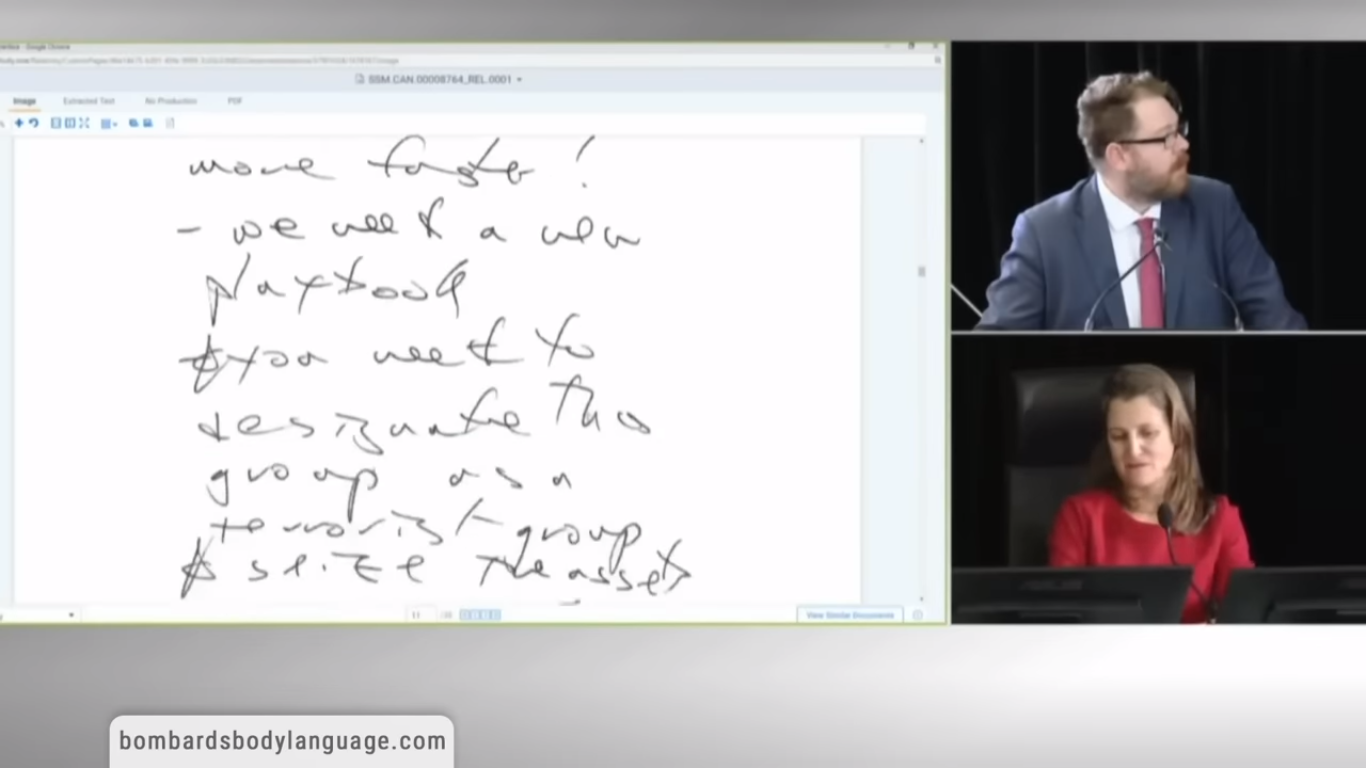 SSM.CAN.00008764_REL.0001
Image Extracted Text No Production PDF
more faster!
- we need a new
playbook
& you need to
designate this
group as a
terrorist group
& seize the assets
11
View Similar Documents
bombardsbodylanguage.com